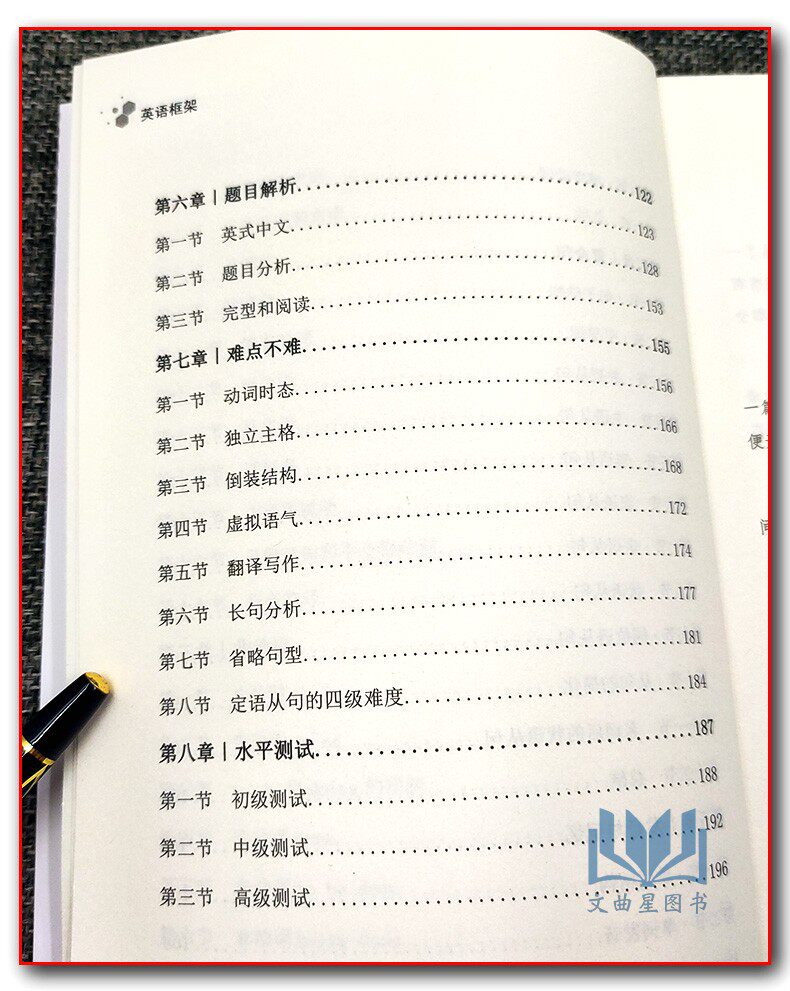 英语框架
第六章 | 题目解析........................................122
第一节 英式中文........................................123
第二节 题目分析........................................128
第三节 完型和阅读........................................153
第七章 | 难点不难........................................155
第一节 动词时态........................................156
第二节 独立主格........................................166
第三节 倒装结构........................................168
第四节 虚拟语气........................................172
第五节 翻译写作........................................174
第六节 长句分析........................................177
第七节 省略句型........................................181
第八节 定语从句的四级难度................................184
第八章 | 水平测试........................................187
第一节 初级测试........................................188
第二节 中级测试........................................192
第三节 高级测试........................................196
文曲星图书
一篇
便